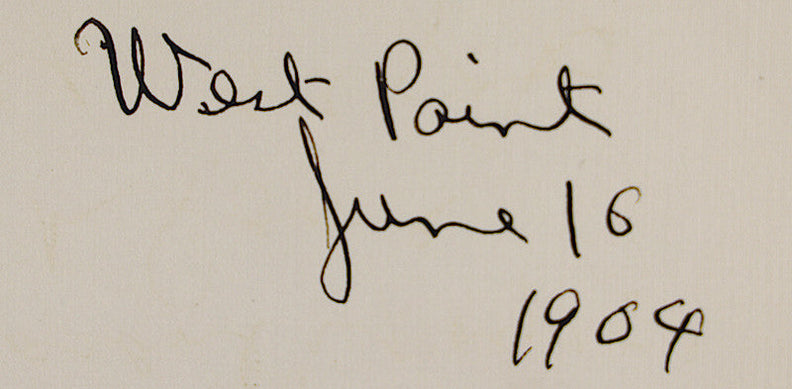 West Point
June 16
1904